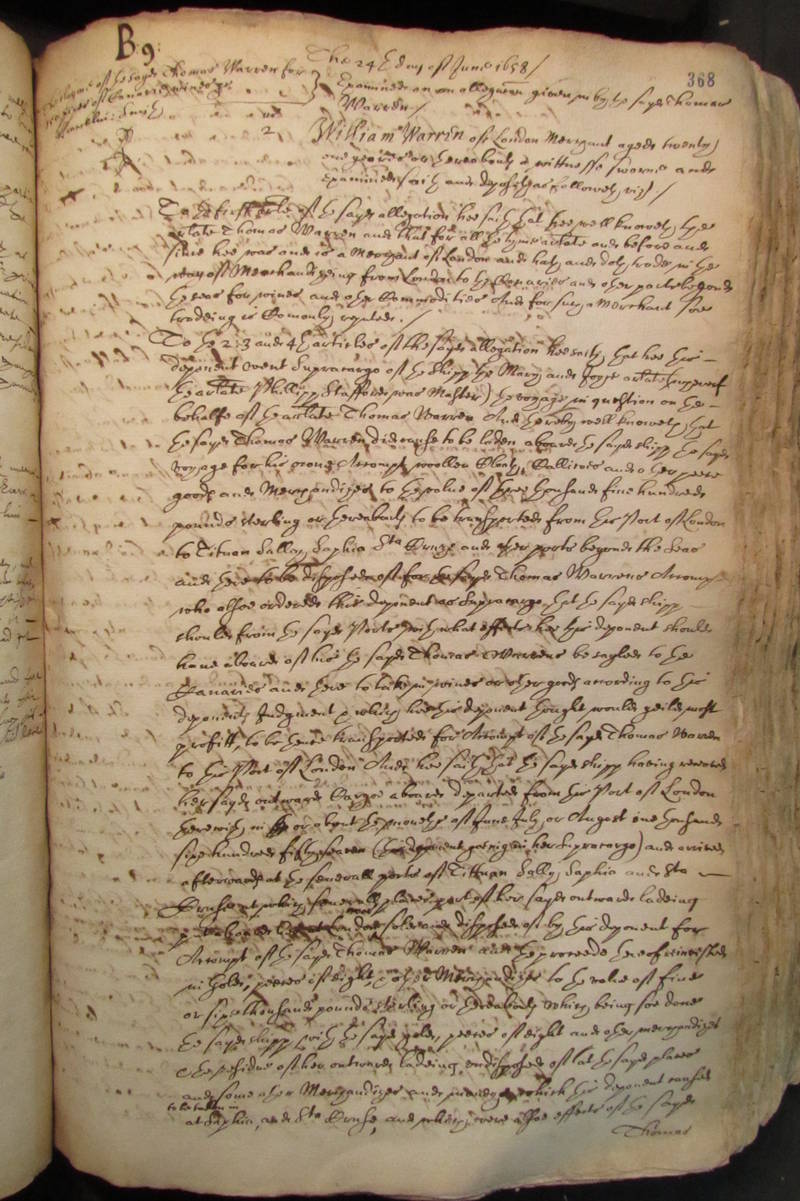 B 9:
The 24th day of June 1658 /
368
The clayme of the sayd Thomas Warren for
Examined on an allegation given in by the sayd Thomas
Warren /
2
William Warren of London Merchant aged twenty
one yeares or thereabouts a wittnesse sworne and
examined saith and deposeth as followeth vizt /
To the first arlate of the sayd allegation hee saith that hee well knoweth the
arlate Thomas Warren and that for all the tyme arlate and before and
since hee was and is a Merchant of London and hath and doth trade in the
way of Merchandizeing from London to the Canaries and other parts beyond
the seas for wines and other Commodities And for such a Merchant soe
tradeing is Comonly reputed /
To the 2: 3 and 4th articles of the sayd allegation hee saith that hee this
deponent went Supracargo of the shipp the Mary and Joyce arlate (whereof
the arlate Phillipp Stafford was Master) the voyage in question on the
behalfe of the arlate Thomas Warren And thereby well knoweth that
the sayd Thomas Warren did cause to be laden aboard the sayd shipp the sayd
voyage for his owne Accompt woollen Cloth, Callicoes and other
goods and Merchandizes to the value of three thousand five hundred
pounds sterling or thereabouts to be transported from this Port of London
to Tituan Sally Saphia Sta Cruze and other ports beyond the Seas
and there to be disposed of for the sayd Thomas Warrens Accompt
who alsoe ordered this deponent as Supracargo that the sayd shipp
should from the sayd Ports with what effects hee this deponent should
have aboard of his the sayd Thomas Warrens be sayled to the
Canaries and there to take in wines or other goods according to this
deponents Judgment which hee this deponent thought would yeild most
profitt, to be thence transported for Accompt of the sayd Thomas Warren
to this Port of London And hee saith that the sayd shipp having received
her sayd outward Cargoe aboard departed from this Port of London
therewith in or about the moneths of June July or August one thousand
six hundred fifty seaven (this deponent going in her Supracargo) and arrived
afterwards at the severall ports of Tittuan Sally Saphia and Sta
Cruse at which severall places part of her sayd outwards ladeing
was landed sold and disposed of by this deponent for
Accompt of the sayd Thomas Warren and the proceeds thereof invested
in Gold, peeces of eight, other Merchandizes to the value of five
or six thousand pounds sterling or thereabouts which being soe done
the sayd shipp with the sayd gold, peeces of eight and other merchandizes
the residue of her outwards ladeing undisposed of at the sayd places
and some other Merchandizes and which this deponent caused
to be taken in
at Saphia, and Sta Cruse, and which were alsoe effects of the sayd
Thomas